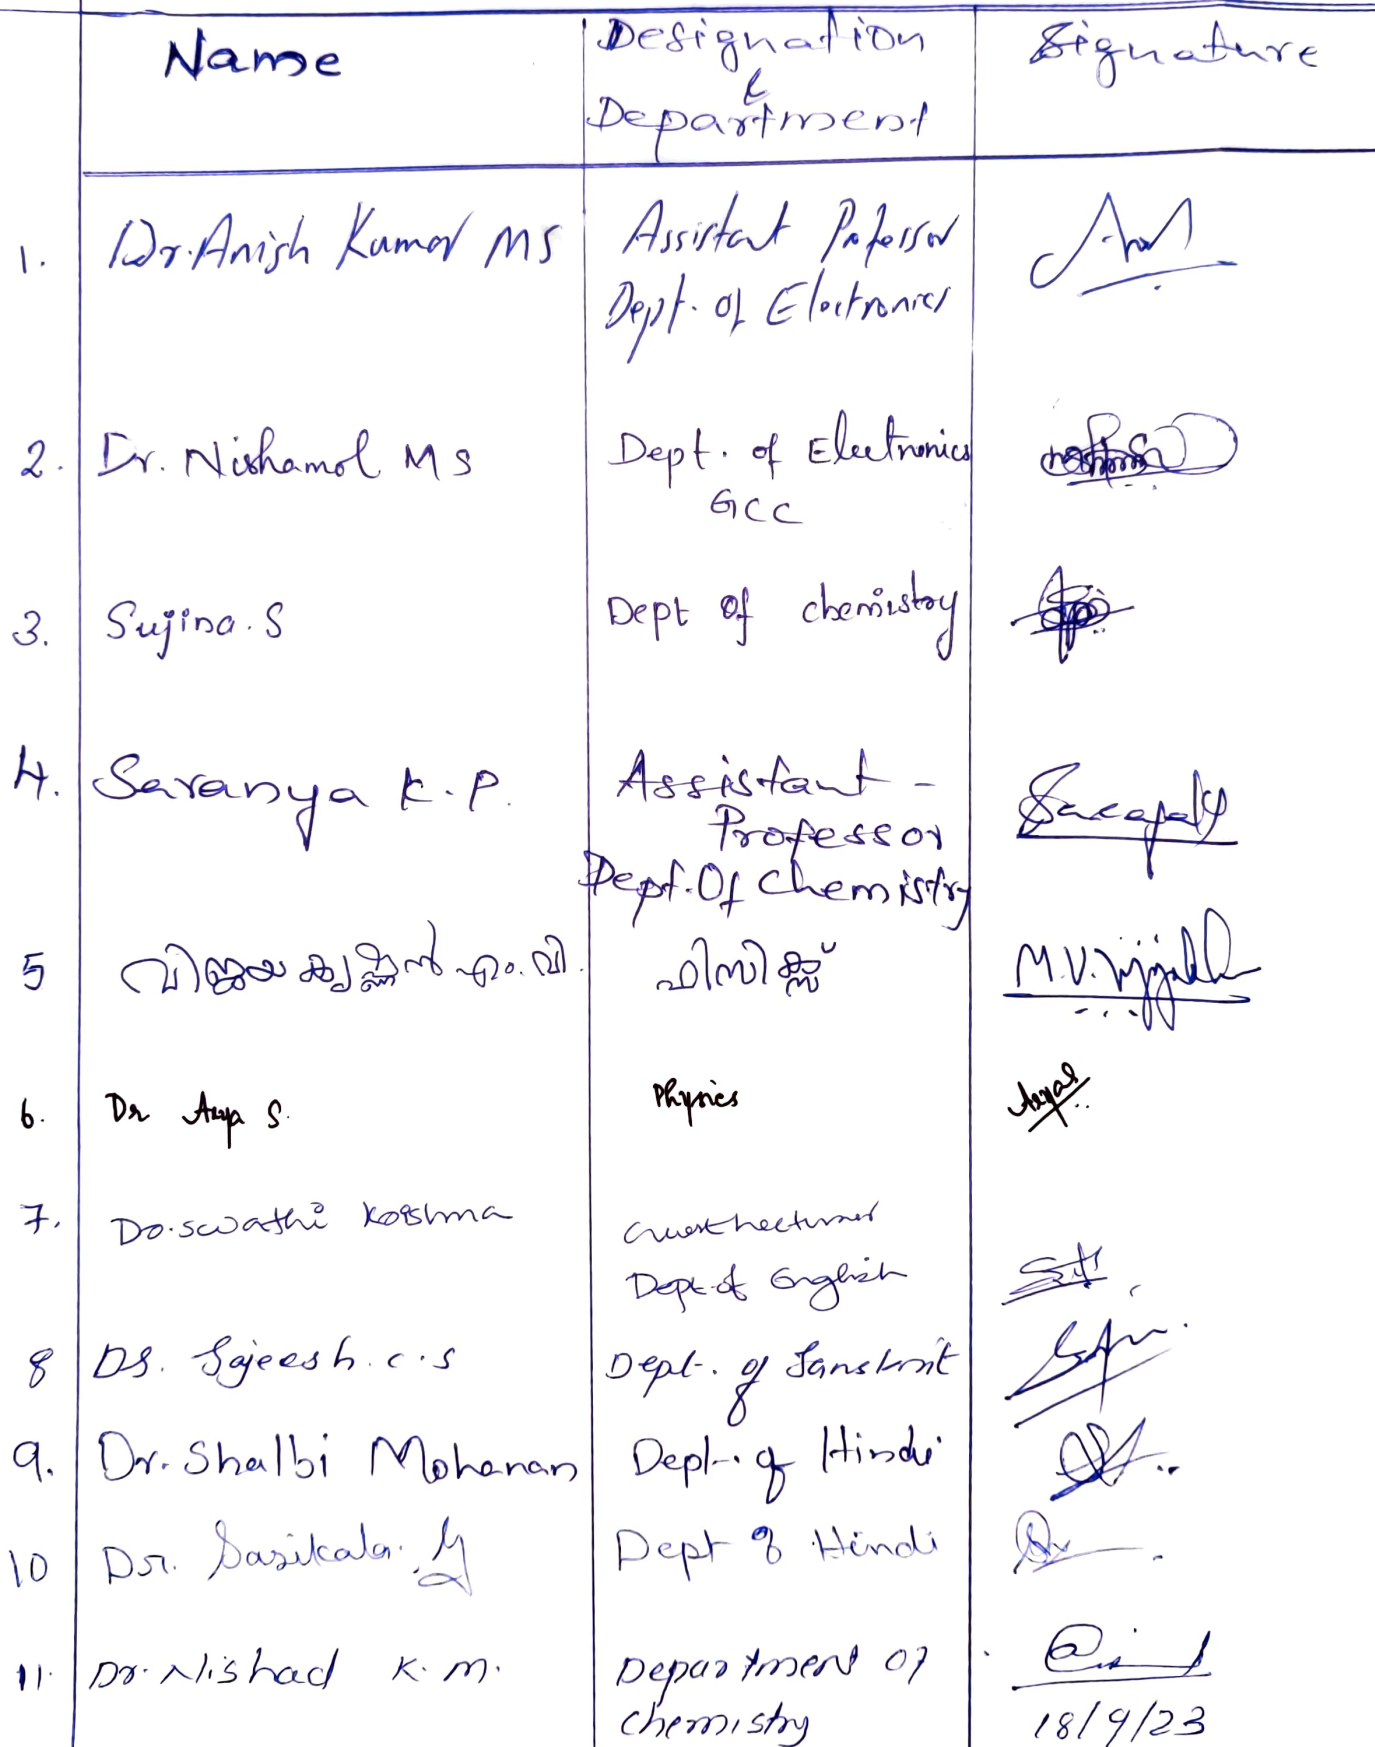 Name Designation & Department Signature
1. Dr. Anish Kumar MS Assistant Professor
Dept. of Electronics
2. Dr. Nishamol MS Dept. of Electronics
GCC
3. Sujina. S Dept of chemistry
4. Saranya K.P. Assistant -
Professor
Dept. Of Chemistry
5 വിജയകൃഷ്ണൻ എം.വി. ഫിസിക്സ് M.V.
6. Dr Arya S. Physics Arya S
7. Dr. Swathi Krishna Guest Lecturer
Dept of English
8 Dr. Sajeesh. C.S Dept. of Sanskrit
9. Dr. Shalbi Mohanan Dept. of Hindi
10 Dr. Sasikala. Dept of Hindi
11. Dr. Nishad K.M. Department of
chemistry 18/9/23